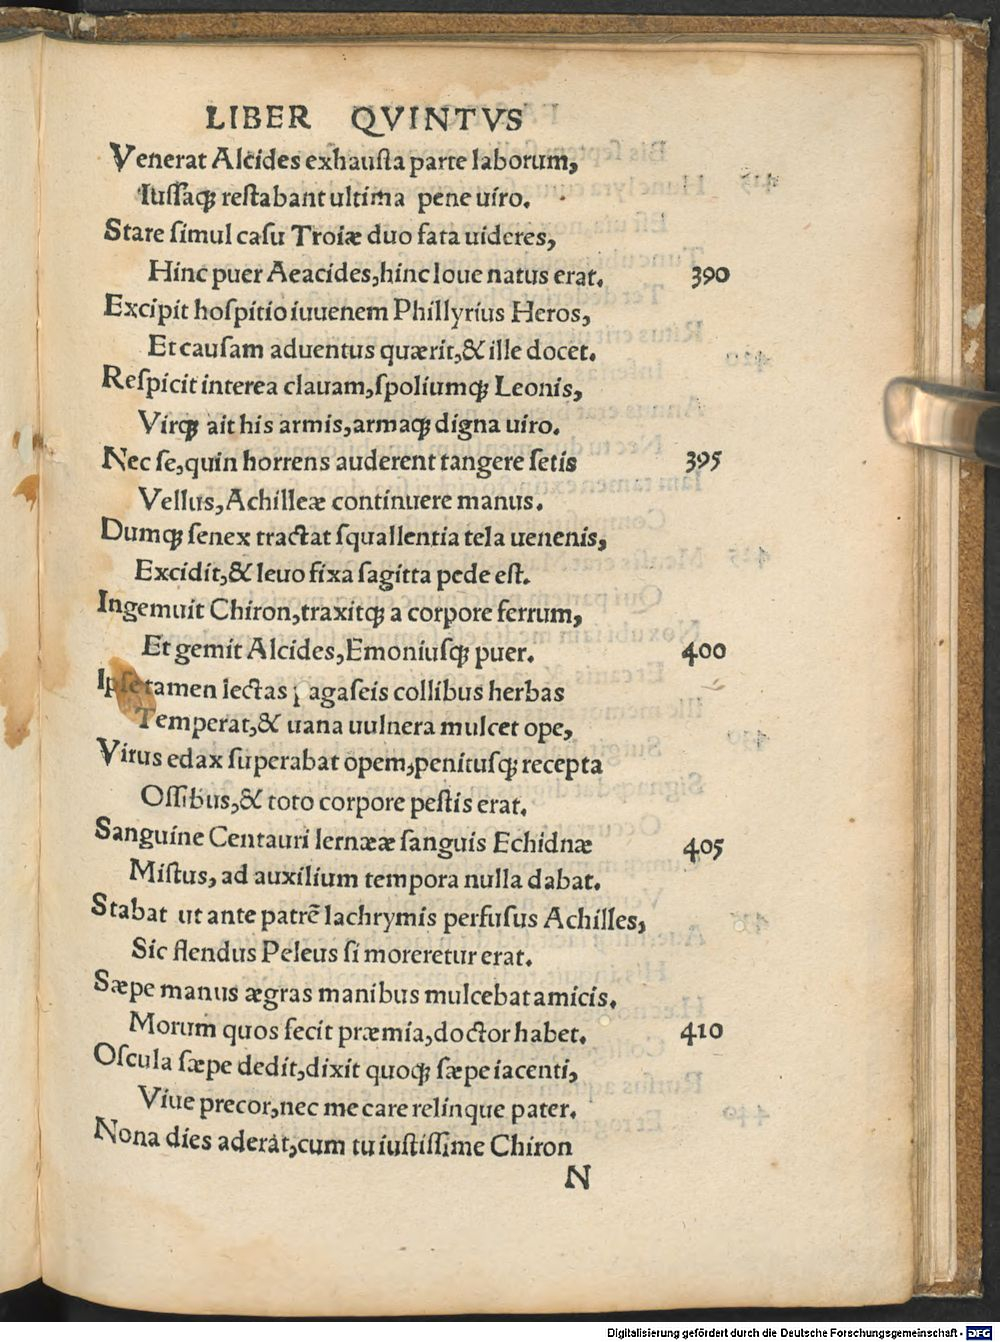 LIBER QVINTVS
Venerat Alcides exhausta parte laborum,
Iussaqȝ restabant ultima pene uiro.
Stare simul casu Troiæ duo fata uideres,
Hinc puer Aeacides, hinc Ioue natus erat. 390
Excipit hospitio iuuenem Phillyrius Heros,
Et causam aduentus quærit, & ille docet.
Respicit interea clauam, spoliumqȝ Leonis,
Virqȝ ait his armis, armaqȝ digna uiro.
Nec se, quin horrens auderent tangere setis 395
Vellus, Achilleæ continuere manus.
Dumqȝ senex tractat squallentia tela uenenis,
Excidit, & leuo fixa sagitta pede est.
Ingemuit Chiron, traxitqȝ a corpore ferrum,
Et gemit Alcides, Emoniusqȝ puer. 400
Ipse tamen lectas pagaseis collibus herbas
Temperat, & uana uulnera mulcet ope,
Virus edax superabat opem, penitusqȝ recepta
Ossibus, & toto corpore pestis erat.
Sanguine Centauri lernææ sanguis Echidnæ 405
Mistus, ad auxilium tempora nulla dabat.
Stabat ut ante patrē lachrymis perfusus Achilles,
Sic flendus Peleus si moreretur erat.
Sæpe manus ægras manibus mulcebat amicis.
Morum quos fecit præmia, doctor habet. 410
Oscula sæpe dedit, dixit quoqȝ sæpe iacenti,
Viue precor, nec me care relinque pater.
Nona dies aderat, cum tu iustissime Chiron
N
Digitalisierung gefördert durch die Deutsche Forschungsgemeinschaft - DFG